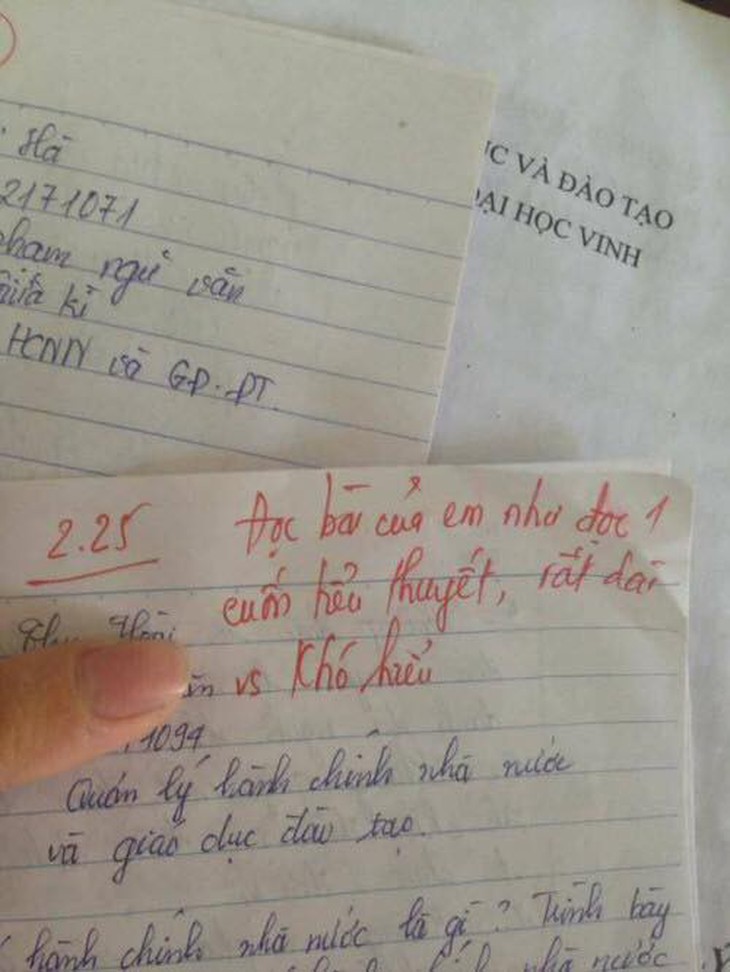 Hà
2171071
phạm ngữ văn
giữa kì
HCNN và GD-ĐT.
ỤC VÀ ĐÀO TẠO
ĐẠI HỌC VINH
2.25
Đọc bài của em như đọc 1
cuốn tiểu thuyết, rất dài
vs Khó hiểu
1094
Quản lý hành chính nhà nước
và giáo dục đào tạo.
hành chính nhà nước là gì? Trình bày
nhà nước